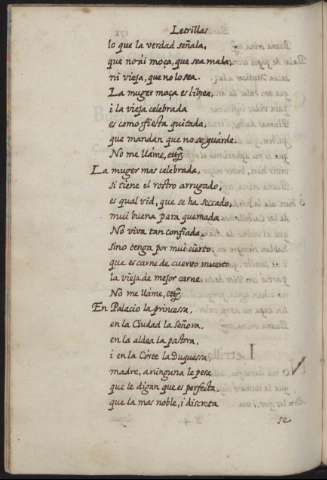 Letrillas
lo que la verdad señala,
que no ai moça, que sea mala,
ni vieja, que no lo sea.
La muger moça es
i la vieja celebrada
es como fiesta quitada,
que mandan que no se guarde.
No me llame, etc.
La muger mas celebrada,
si tiene el rostro arrugado,
es qual vid, que se ha secado,
mui buena para quemada.
No viva tan confiada,
sino tenga por mui cierto,
que es carne de cuervo muerto
la vieja de mejor carne.
No me llame, etc.
En Palacio la princesa,
en la Ciudad la Señora,
en la aldea la pastora,
i en la Corte la Duquesa
madre, a ninguna le pese
que le digan que es perfeta,
que la mas noble, i discreta
se